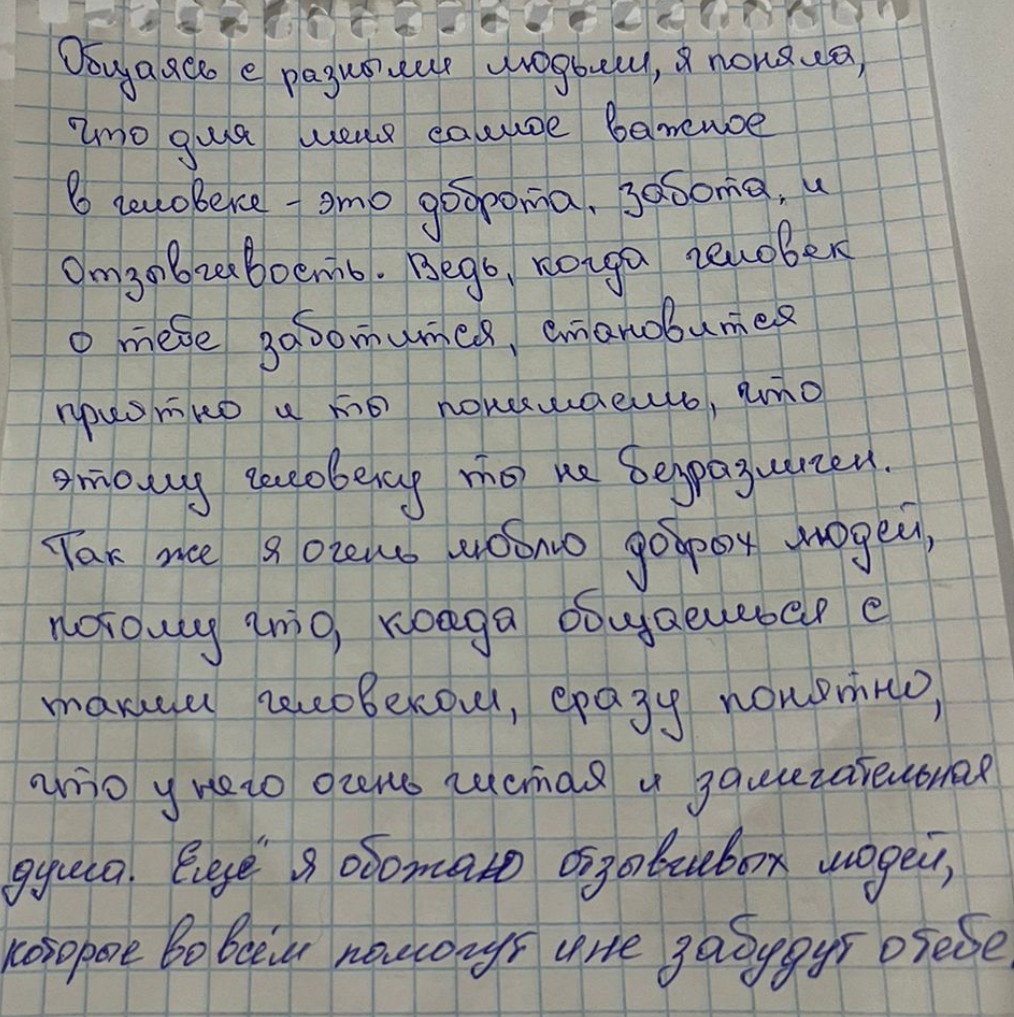 Общаясь с разными людьми, я поняла,
что для меня самое важное
в человеке - это доброта, забота, и
отзывчивость. Ведь, когда человек
о тебе заботится, становится
приятно и ты понимаешь, что
этому человеку ты не безразличен.
Так же я очень люблю добрых людей,
потому что, когда общаешься с
таким человеком, сразу понятно,
что у него очень чистая и замечательная
душа. Ещё я обожаю отзывчивых людей,
которые во всём помогут и не забудут о тебе.